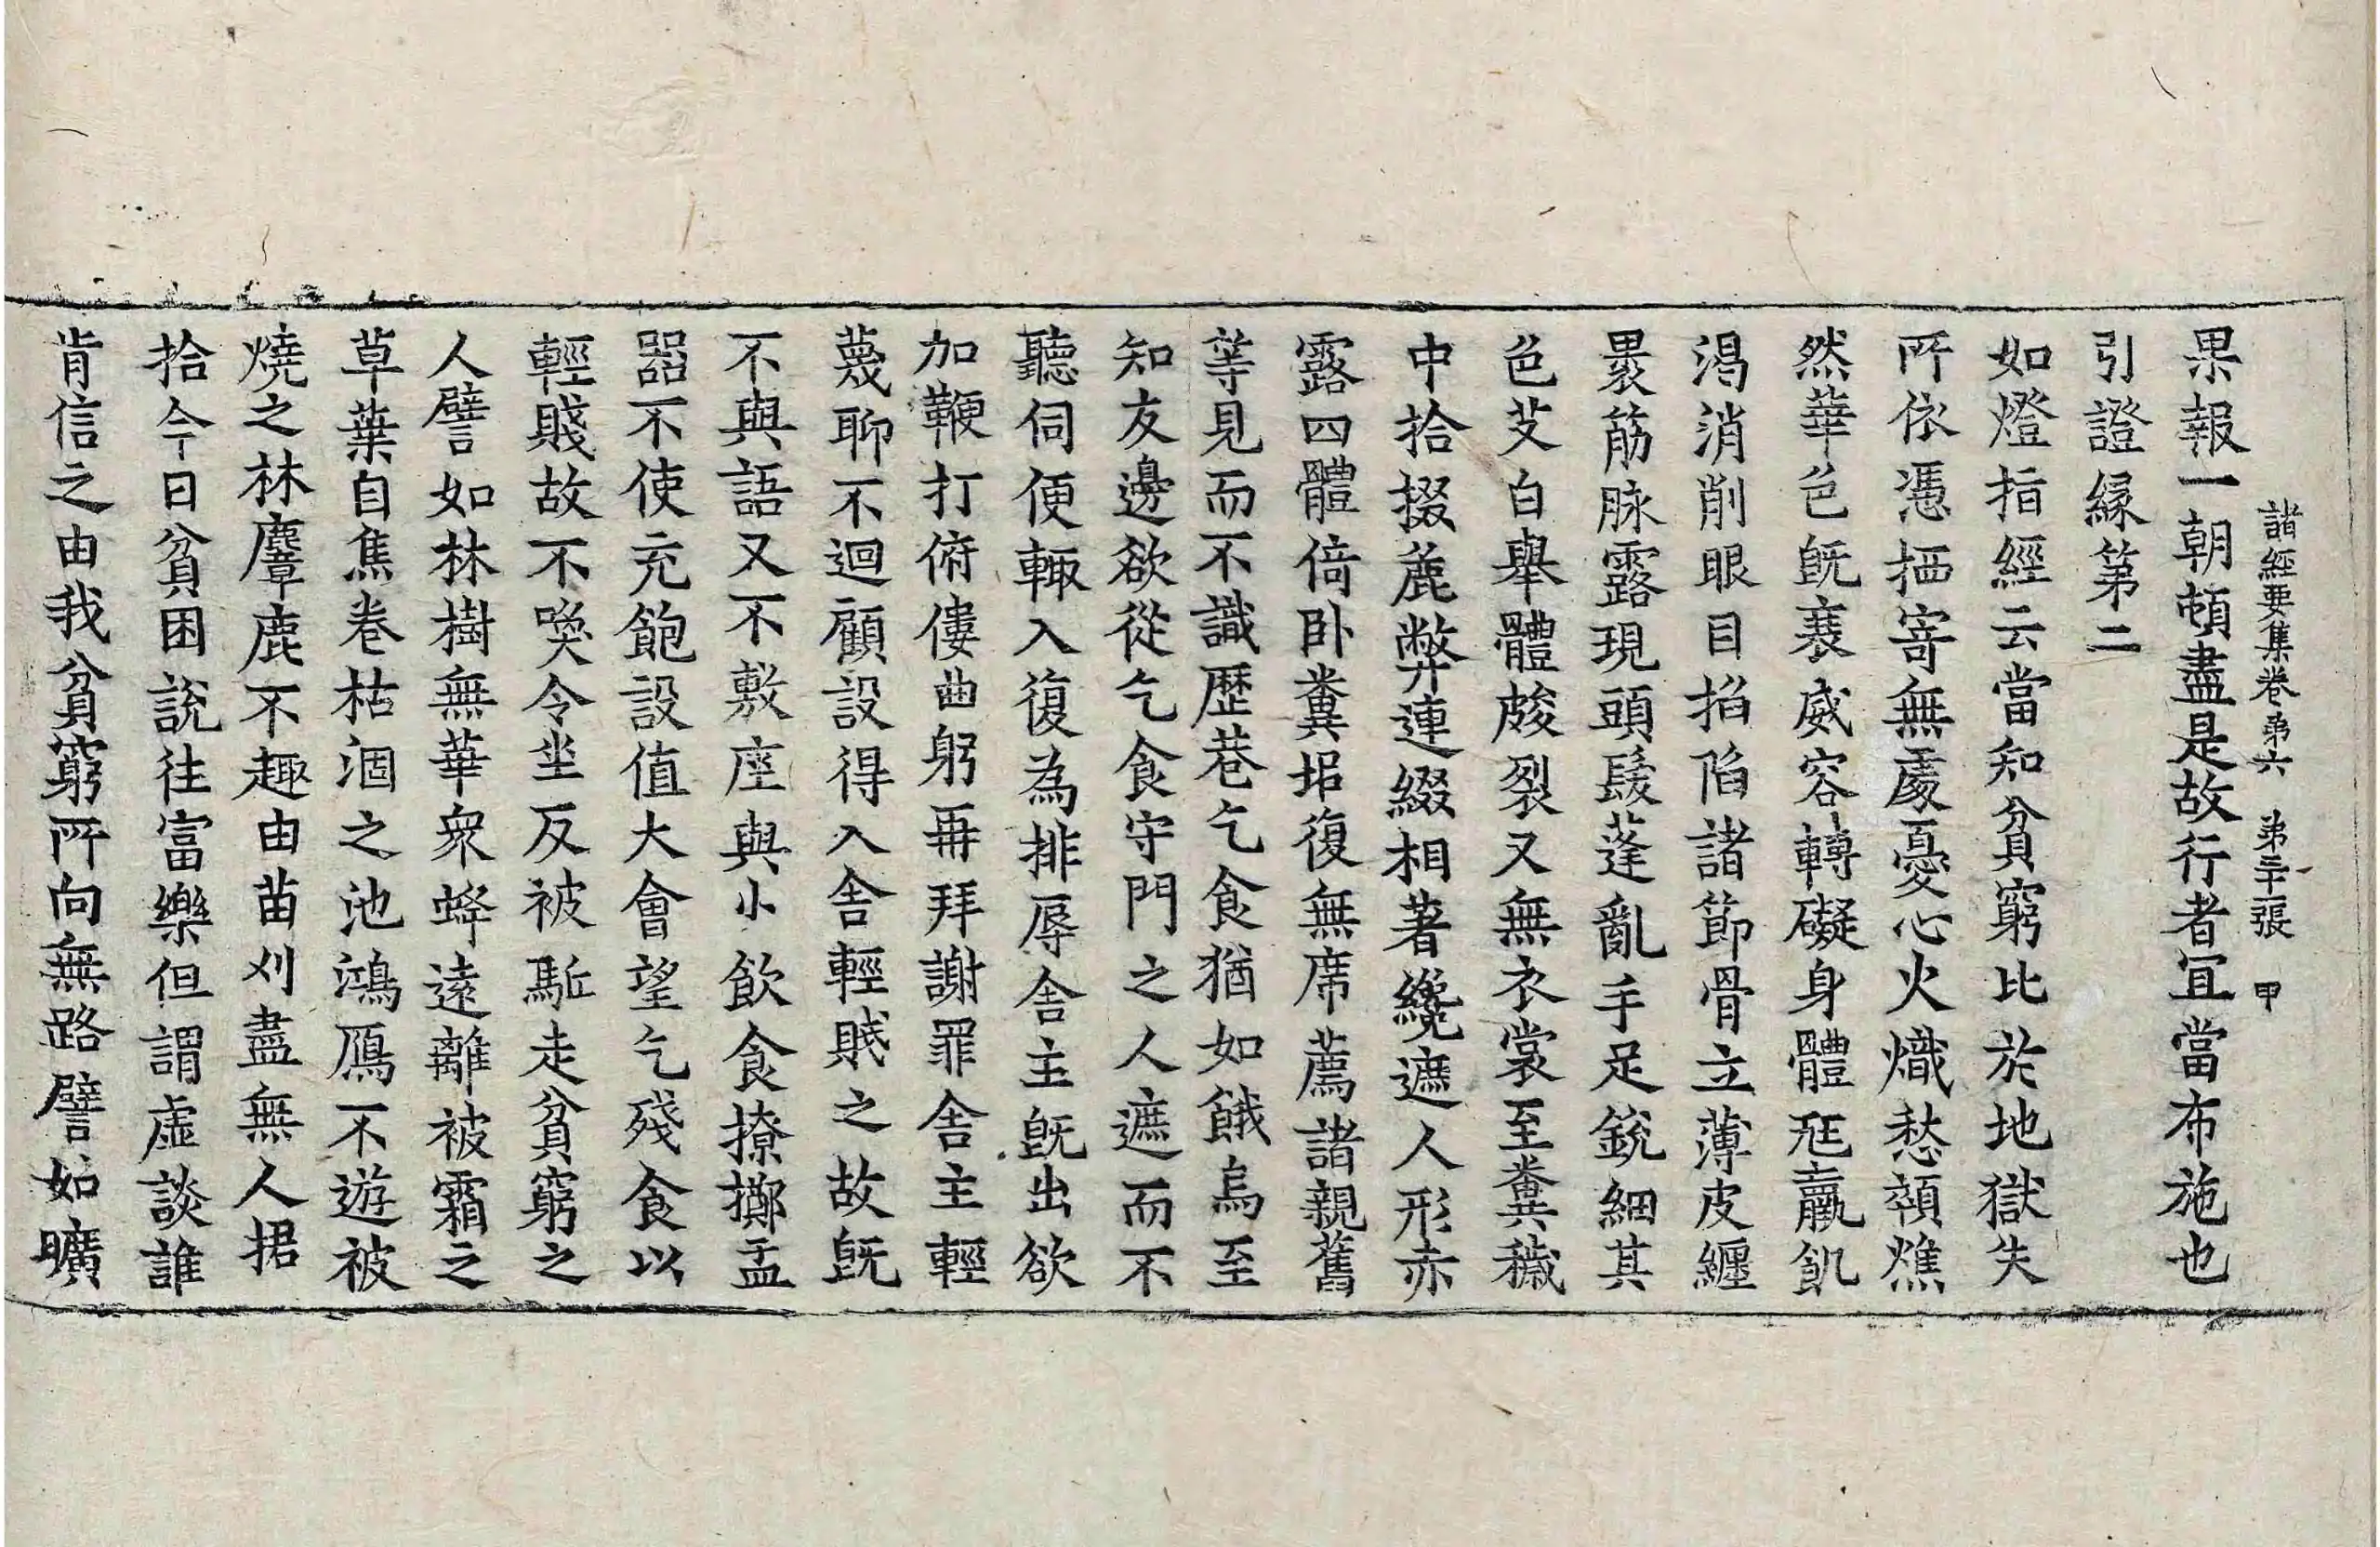 諸經要集卷第六 第二十張 甲
果報一朝頓盡是故行者宜當布施也
引證緣第二
如燈指經云當知貧窮比於地獄失
所依憑栖寄無處憂心火熾愁顇燋
然華色旣衰威容轉礙身體尫羸飢
渴消削眼目掐陷諸節骨立薄皮纏
褁筋脉露現頭髮蓬亂手足銳細其
色艾白舉體皴裂又無衣裳至糞穢
中拾掇麁弊連綴相著纔遮人形赤
露四體倚卧糞堆復無席薦諸親舊
等見而不識歷巷乞食猶如餓烏至
知友邊欲從乞食守門之人遮而不
聽伺便輙入復為排辱舍主旣出欲
加鞭打俯僂曲躬再拜謝罪舍主輕
蔑聊不迴顧設得入舍輕賤之故旣
不與語又不敷座與小飲食撩擲盂
器不使充飽設值大會望乞殘食以
輕賤故不喚令坐反被駈走貧窮之
人譬如林樹無華衆蜂遠離被霜之
草葉自焦卷枯涸之池鴻鴈不遊被
燒之林麞鹿不趣田苗刈盡無人捃
拾今日貧困說往富樂但謂虛談誰
肯信之由我貧窮所向無路譬如曠